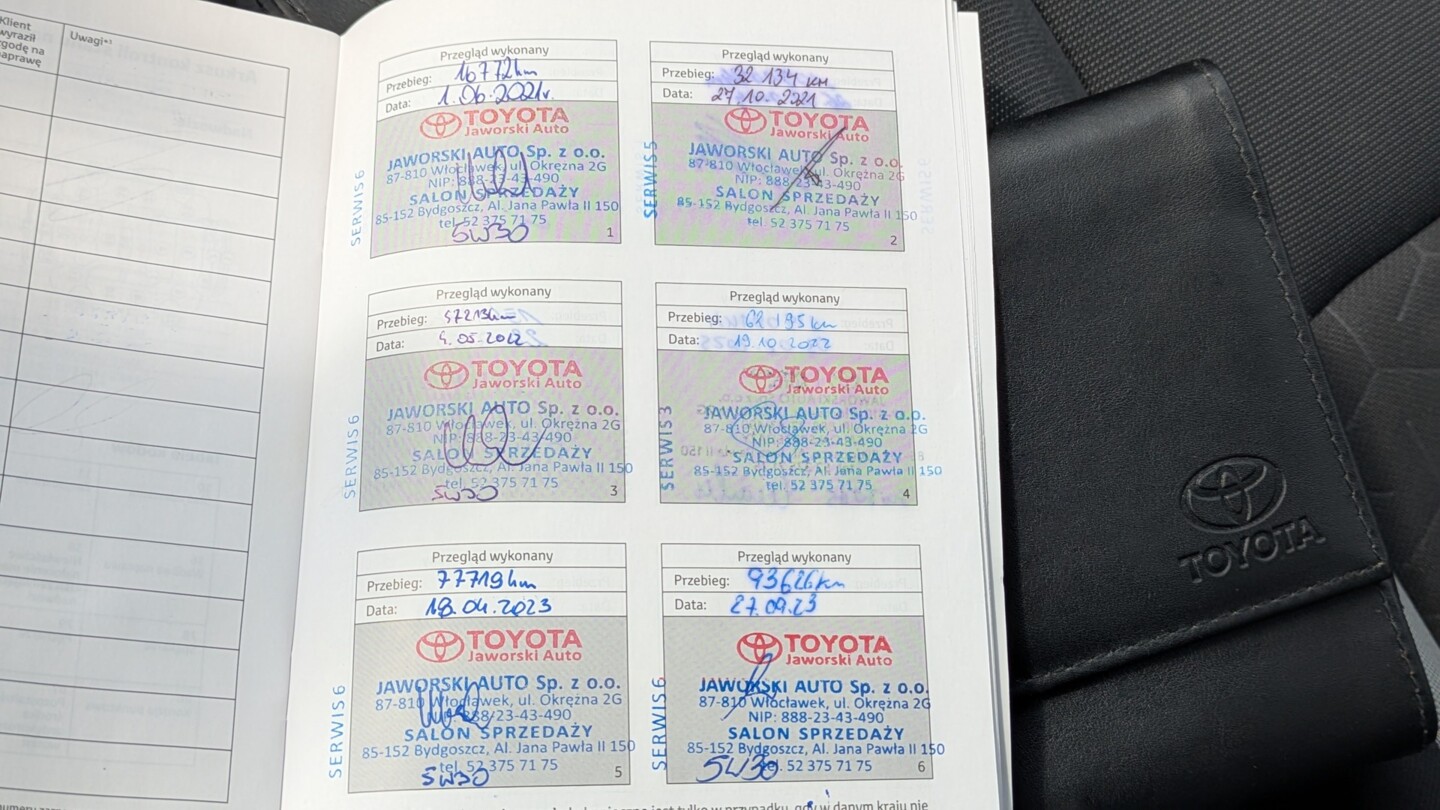 Klient
wyraził
zgodę na
naprawę
Uwagi*³
Przegląd wykonany
Przebieg: 16772km
Data: 1.06.2021r.
TOYOTA
Jaworski Auto
JAWORSKI AUTO Sp. z o.o.
87-810 Włocławek, ul. Okrężna 2G
NIP: 888-23-43-490
SALON SPRZEDAŻY
85-152 Bydgoszcz, Al. Jana Pawła II 150
tel. 52 375 71 75
5W30
1
SERWIS 6
Przegląd wykonany
Przebieg: 32 134 KM
Data: 27.10.2021
TOYOTA
Jaworski Auto
JAWORSKI AUTO Sp. z o.o.
87-810 Włocławek, ul. Okrężna 2G
NIP: 888-23-43-490
SALON SPRZEDAŻY
85-152 Bydgoszcz, Al. Jana Pawła II 150
tel. 52 375 71 75
2
SERWIS 5
Przegląd wykonany
Przebieg: 47213km
Data: 4.05.2022
TOYOTA
Jaworski Auto
JAWORSKI AUTO Sp. z o.o.
87-810 Włocławek, ul. Okrężna 2G
NIP: 888-23-43-490
SALON SPRZEDAŻY
85-152 Bydgoszcz, Al. Jana Pawła II 150
tel. 52 375 71 75
5W30
3
SERWIS 6
Przegląd wykonany
Przebieg: 62 195km
Data: 19.10.2022
TOYOTA
Jaworski Auto
JAWORSKI AUTO Sp. z o.o.
87-810 Włocławek, ul. Okrężna 2G
NIP: 888-23-43-490
SALON SPRZEDAŻY
85-152 Bydgoszcz, Al. Jana Pawła II 150
tel. 52 375 71 75
4
SERWIS 3
Przegląd wykonany
Przebieg: 77719km
Data: 18.04.2023
TOYOTA
Jaworski Auto
JAWORSKI AUTO Sp. z o.o.
87-810 Włocławek, ul. Okrężna 2G
NIP: 888-23-43-490
SALON SPRZEDAŻY
85-152 Bydgoszcz, Al. Jana Pawła II 150
tel. 52 375 71 75
5W30
5
SERWIS 6
Przegląd wykonany
Przebieg: 93626km
Data: 27.09.23
TOYOTA
Jaworski Auto
JAWORSKI AUTO Sp. z o.o.
87-810 Włocławek, ul. Okrężna 2G
NIP: 888-23-43-490
SALON SPRZEDAŻY
85-152 Bydgoszcz, Al. Jana Pawła II 150
tel. 52 375 71 75
5W30
6
SERWIS 6
jest tylko w przypadku, gdy w danym kraju nie
TOYOTA